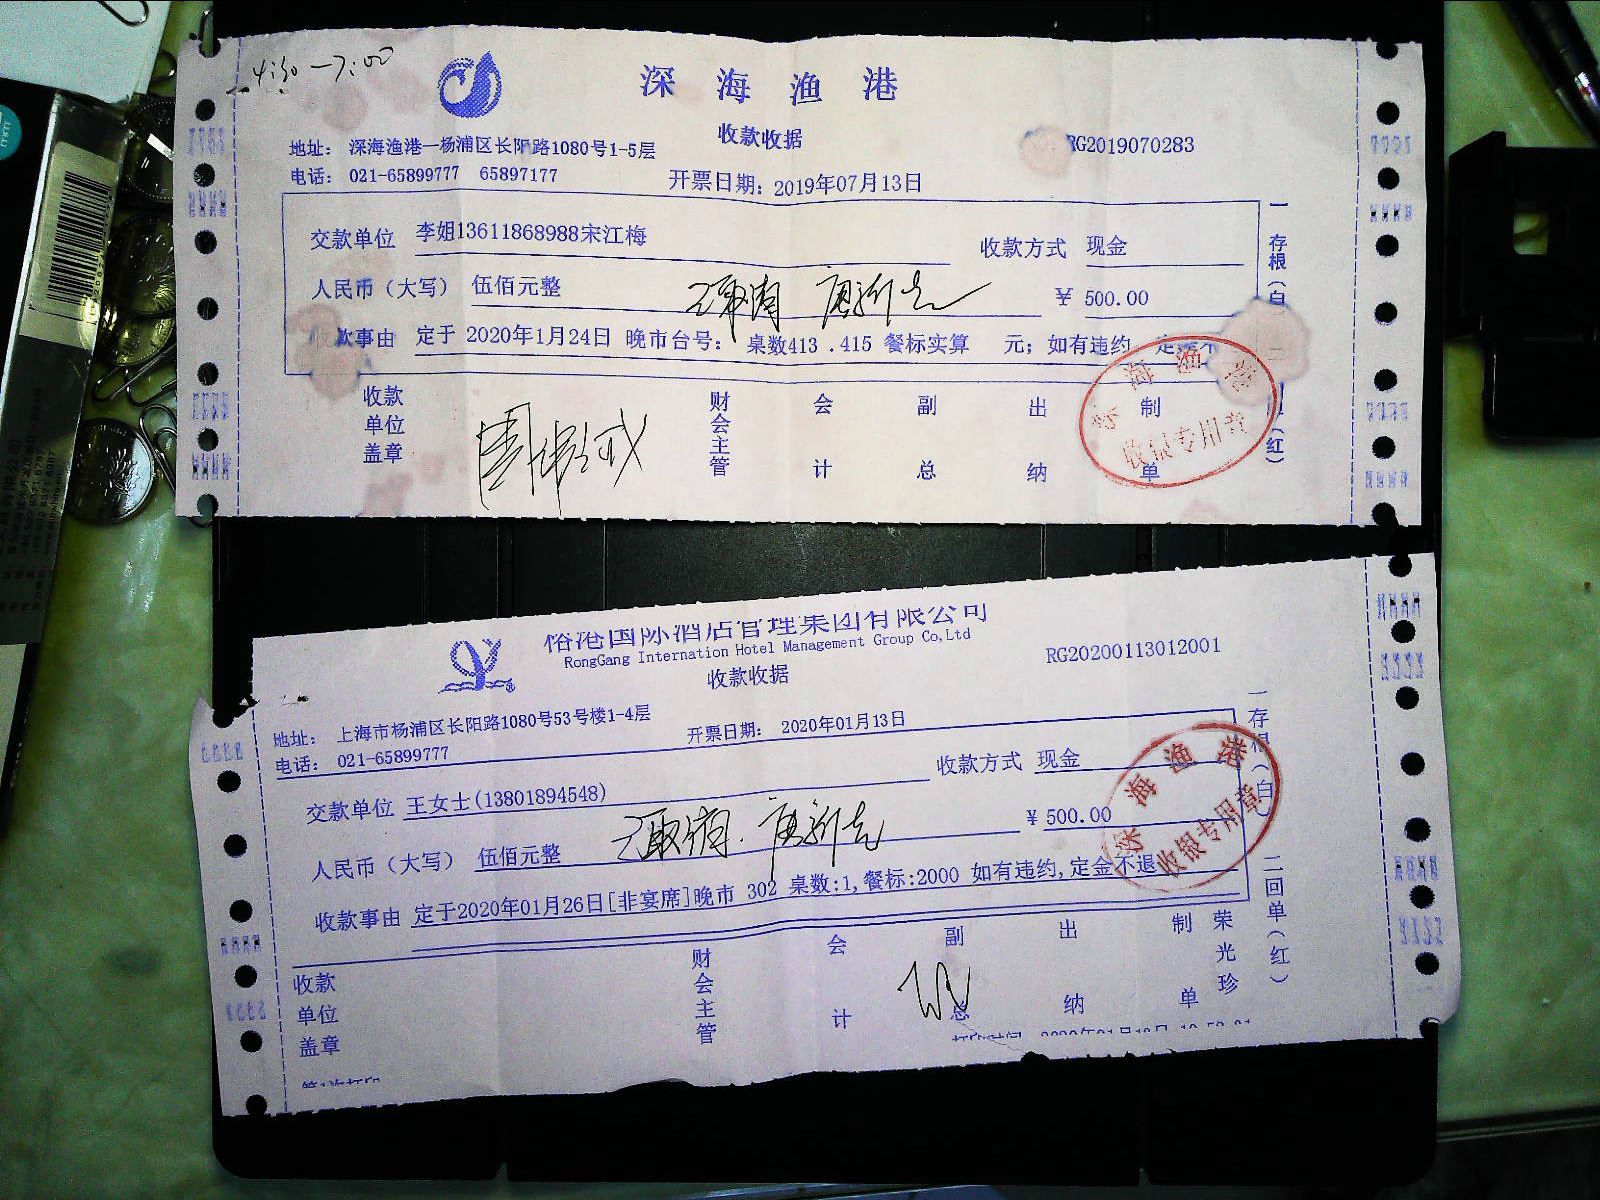 4:30-7:00
深海渔港
收款收据
地址： 深海渔港—杨浦区长阳路1080号1-5层
RG2019070283
电话： 021-65899777 65897177
开票日期：2019年07月13日
交款单位 李姐13611868988宋江梅
收款方式 现金
人民币（大写） 伍佰元整
¥ 500.00
收款事由 定于 2020年1月24日 晚市台号： 桌数413 .415 餐标实算 元；如有违约，定金不
收款单位盖章
财会主管
会计
副总
出纳
制单
一存根（白）
（红）
深海渔港
收银专用章
裕港国际酒店管理集团有限公司
RongGang Internation Hotel Management Group Co,Ltd
收款收据
RG20200113012001
地址： 上海市杨浦区长阳路1080号53号楼1-4层
电话： 021-65899777
开票日期： 2020年01月13日
交款单位 王女士(13801894548)
收款方式 现金
人民币（大写） 伍佰元整
¥ 500.00
收款事由 定于2020年01月26日[非宴席]晚市 302 桌数:1,餐标:2000 如有违约,定金不退
收款单位盖章
财会主管
会计
副总
出纳
制单
荣光珍
一存根（白）
二回单（红）
深海渔港
收银专用章
第1次打印